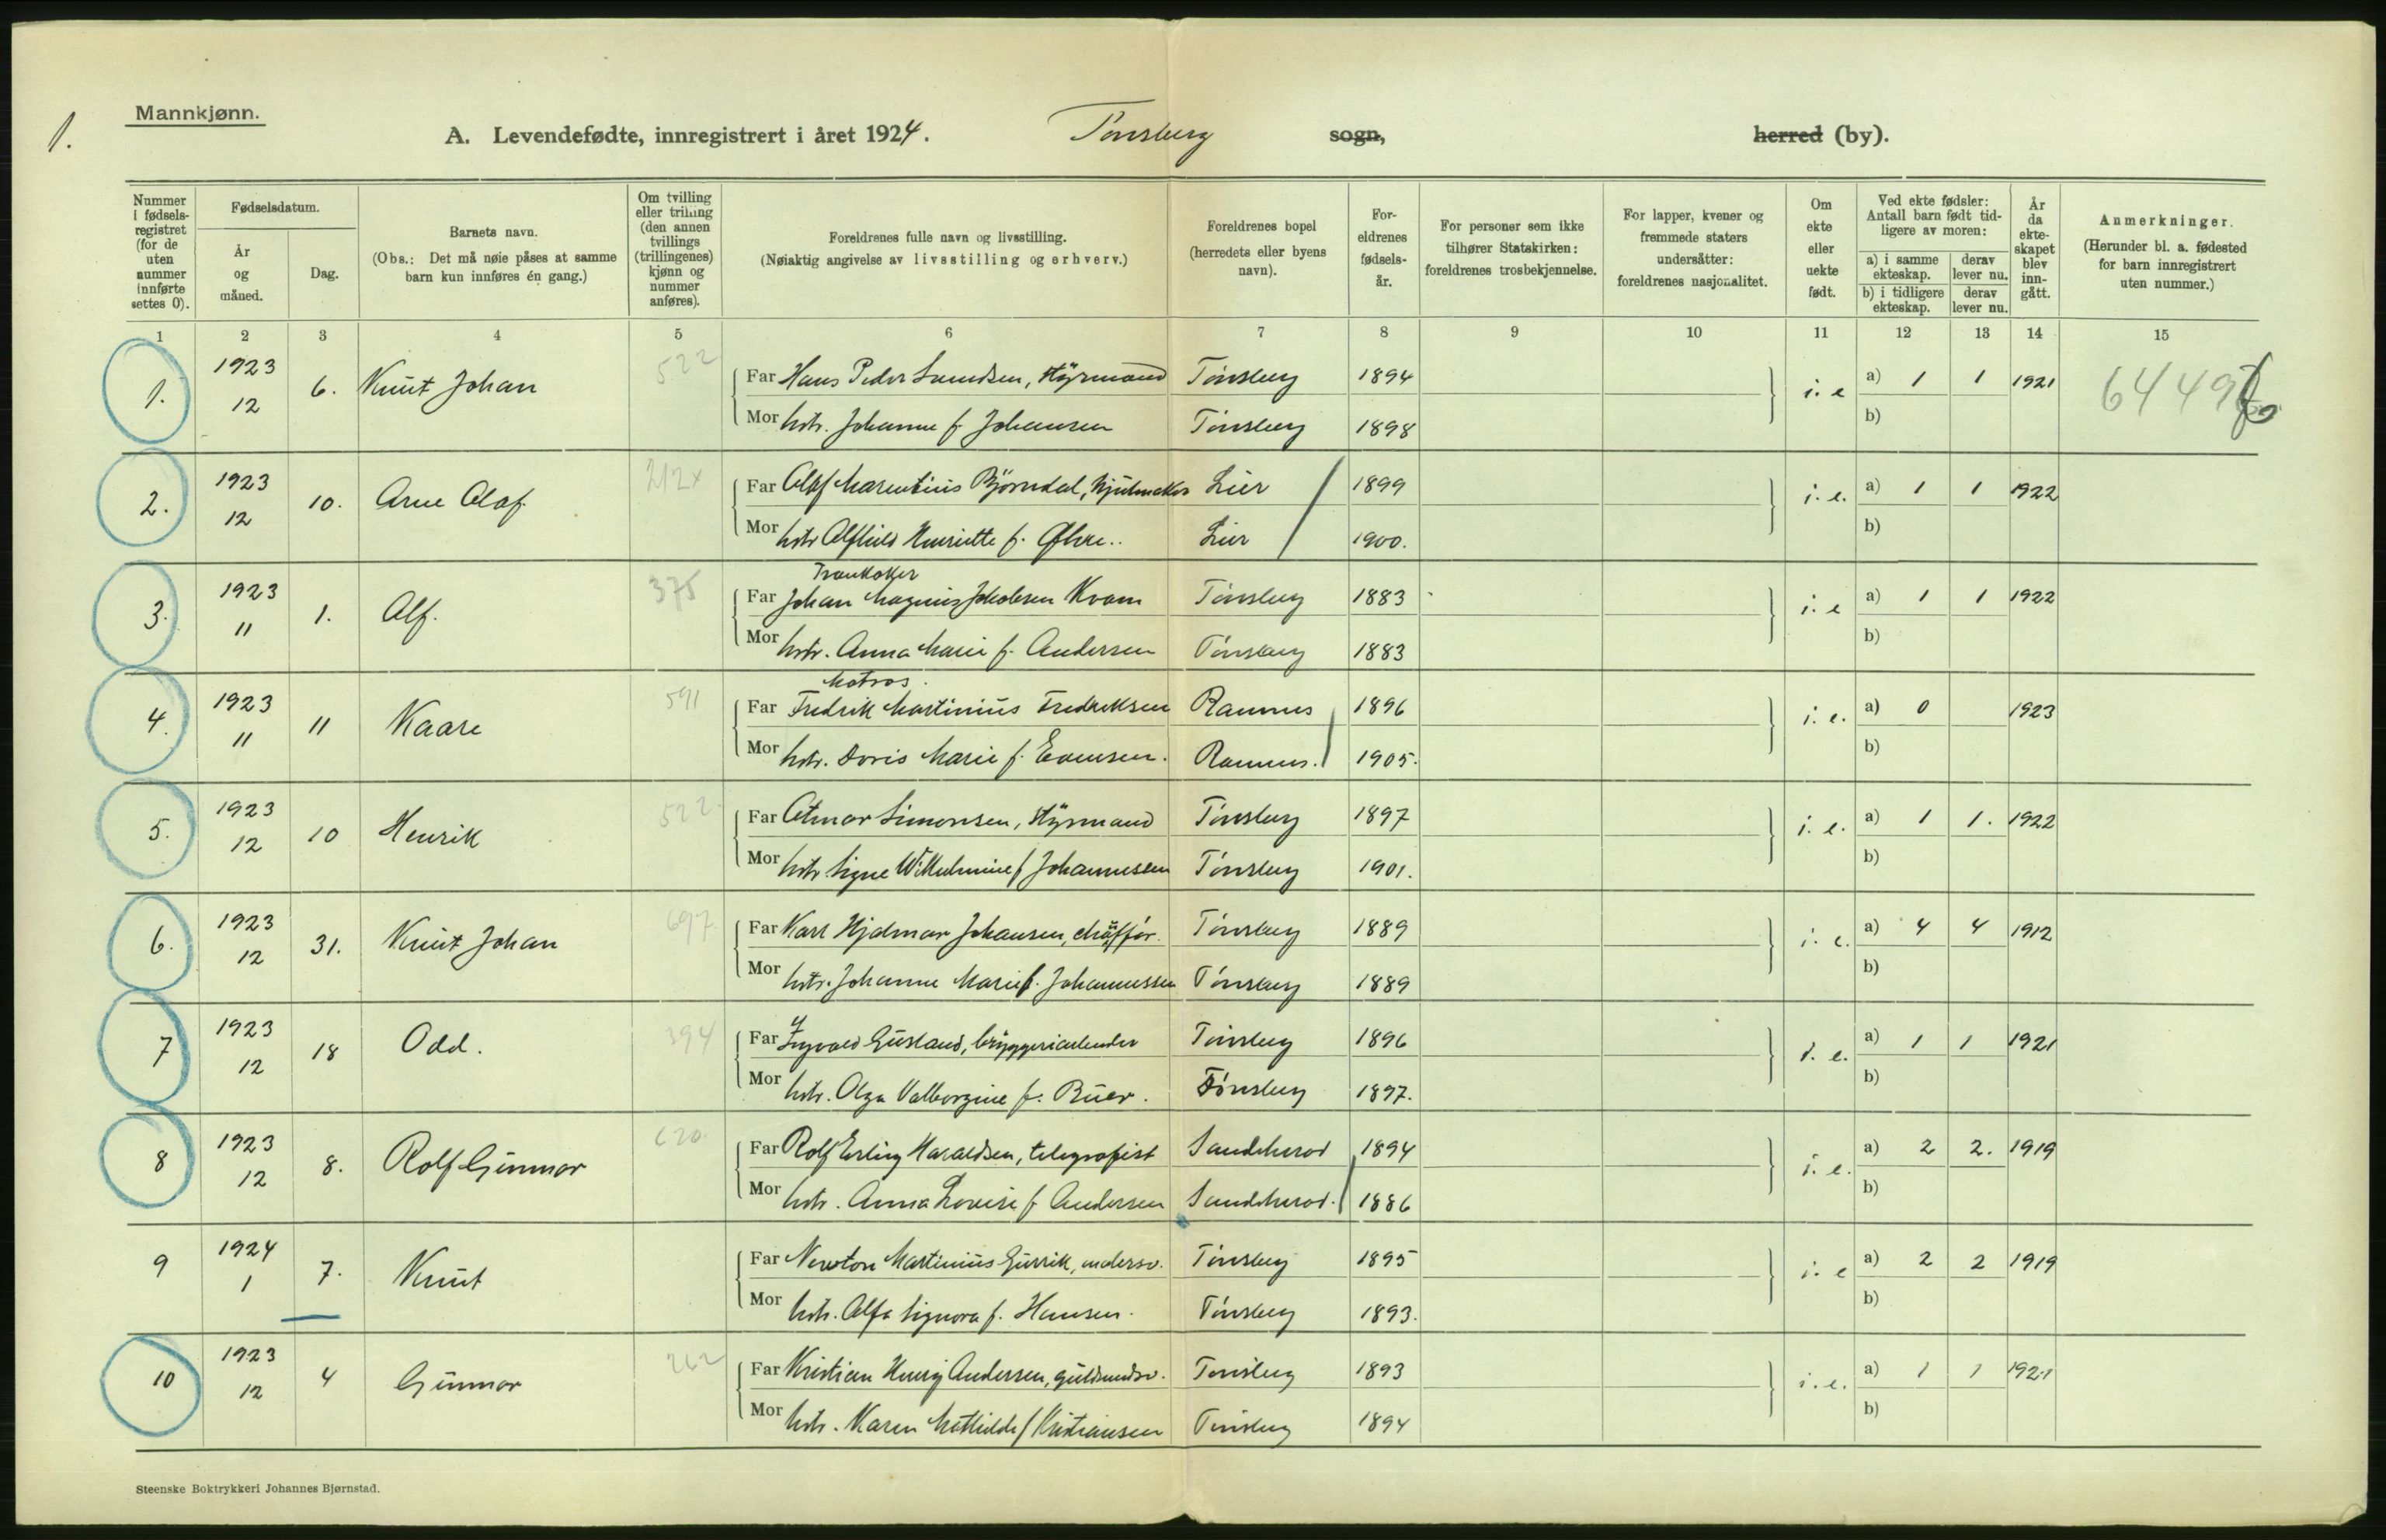 1.
Mannkjønn.
A. Levendefødte, innregistrert i året 1924. Tønsberg sogn, herred (by).
Nummer i fødselsregistret (for de uten nummer innførte settes 0).
Fødselsdatum.
År og måned.
Dag.
Barnets navn.
(Obs.: Det må nøie påses at samme barn kun innføres én gang.)
Om tvilling eller trilling (den annen tvillings (trillingenes) kjønn og nummer anføres).
Foreldrenes fulle navn og livsstilling.
(Nøiaktig angivelse av livsstilling og erhverv.)
Foreldrenes bopel (herredets eller byens navn).
Foreldrenes fødselsår.
For personer som ikke tilhører Statskirken: foreldrenes trosbekjennelse.
For lapper, kvener og fremmede staters undersåtter: foreldrenes nasjonalitet.
Om ekte eller uekte født.
Ved ekte fødsler: Antall barn født tidligere av moren:
a) i samme ekteskap. derav lever nu.
b) i tidligere ekteskap. derav lever nu.
År da ekteskapet blev inngått.
Anmerkninger.
(Herunder bl. a. fødested for barn innregistrert uten nummer.)
1 2 3 4 5 6 7 8 9 10 11 12 13 14 15
1. 1923 12 6. Knut Johan 522
Far Hans Peder , styrmand Tønsberg 1894 i. e a) 1 1 1921
Mor hstr. Johanne f. Johansen Tønsberg 1898 b)
2. 1923 12 10. Arne Olaf. 212x
Far Olaf Marentius Bjørndal, hjulmaker Lier 1899 i. e. a) 1 1 1922
Mor hstr Alfhild Henriette f. Lier 1900. b)
3. 1923 11 1. Alf. 375
Trankoker
Far Johan Magnus Jakobsen Kvam Tønsberg 1883 i. e a) 1 1 1922
Mor hstr. Anna Marie f. Andersen Tønsberg 1883 b)
4. 1923 11 11 Kaare 591
Matros.
Far Fredrik Martinius Fredriksen Ramnes 1896 i. e. a) 0 1923
Mor hstr. Doris Marie f. Evensen. Ramnes. 1905. b)
5. 1923 12 10 Henrik 522
Far Simonsen, styrmand Tønsberg 1897 i. e. a) 1 1. 1922
Mor hstr Signe Wilhelmine f Johannessen Tønsberg 1901. b)
6. 1923 12 31. Knut Johan 697
Far Karl Hjalmar Johansen, chauffør. Tønsberg 1889 i. e. a) 4 4 1912
Mor hstr. Johanne Marie f. Johannessen Tønsberg 1889 b)
7 1923 12 18 Odd. 394
Far Yngvald Gusland, bryggeriarbeider Tønsberg 1896 i. e. a) 1 1 1921
Mor hstr. Olga Valborgine f. Buer. Tønsberg 1897. b)
8 1923 12 8. Rolf Gunnar 620
Far Rolf Erling Haraldsen, telegrafist Sandeherod 1894 i. e. a) 2 2. 1919
Mor hstr. Anna Lovise f Andersen Sandeherod. 1886 b)
9 1924 1 7. Knut
Far Newton Martinius , Tønsberg 1895 i. e a) 2 2 1919
Mor hstr. Alfa Signora f. Hansen. Tønsberg 1893. b)
10 1923 12 4 Gunnar 262
Far Kristian Henry Andersen, guldsmedsv. Tønsberg 1893 i. e. a) 1 1 1921
Mor hstr. Karen Mathilde f Kristiansen Tønsberg 1894 b)
Steenske Boktrykkeri Johannes Bjørnstad.